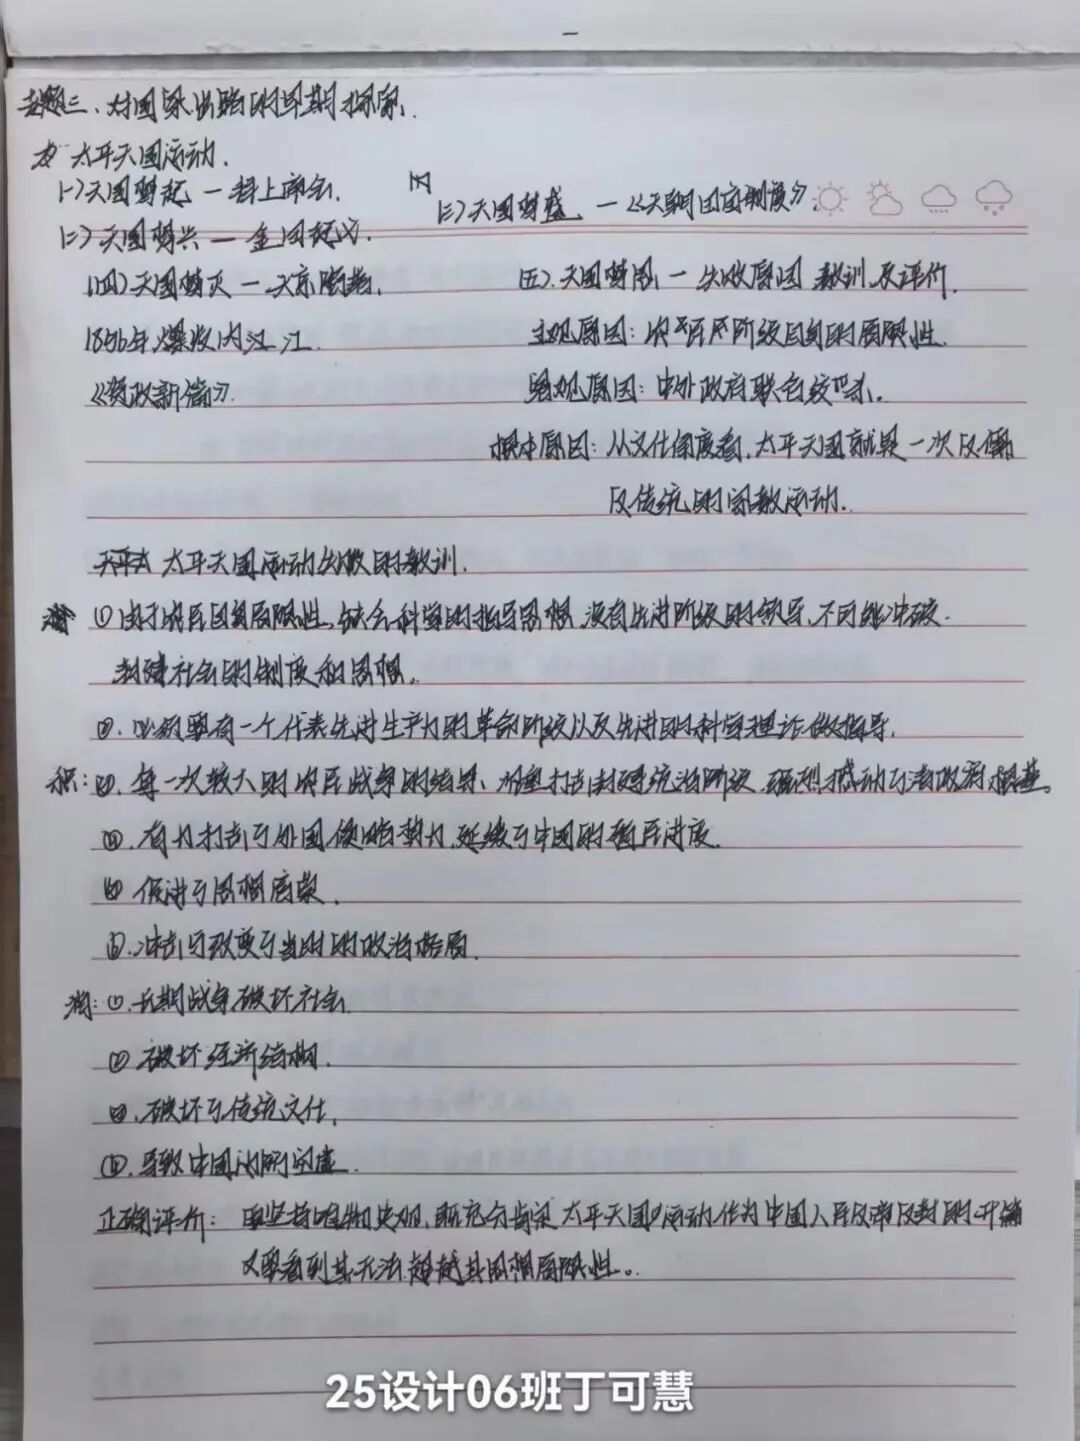 专题三、对国家出路的早期探索.
太平天国运动.
(一)天国梦起 — 拜上帝会.
(三)天国梦盛 — 《天朝田亩制度》.
(二)天国梦兴 — 金田起义.
(四)天国梦灭 — 天京陷落.
(五).天国梦思 — 失败原因 教训及评价.
1856年爆发内江
主观原因: 农民阶级自身的局限性.
《资政新篇》.
客观原因: 中外政府联合绞杀.
根本原因: 从文化角度看,太平天国就是一次反儒
反传统的宗教运动.
太平天国运动失败的教训.
①由于农民自身局限性,缺乏科学的指导思想,没有先进阶级的领导,不可能冲破
封建社会的制度和思想.
②.必须要有一个代表先进生产力的革命阶级以及先进的科学理论做指导.
积: 每一次较大的农民战争的结果、都打击封建统治阶级,强烈撼动了清政府根基。
有力打击了外国侵略势力,延缓了中国的殖民进度.
促进了思想启蒙.
冲击与改变了当时的政治格局.
消: ①.长期战争破坏社会
②破坏经济结构.
破坏了传统文化.
导致中国的空虚.
正确评价: 要坚持唯物史观,既充分肯定太平天国运动作为中国人民反帝反封的开端
又要看到其无法超越其思想局限性。
25设计06班丁可慧